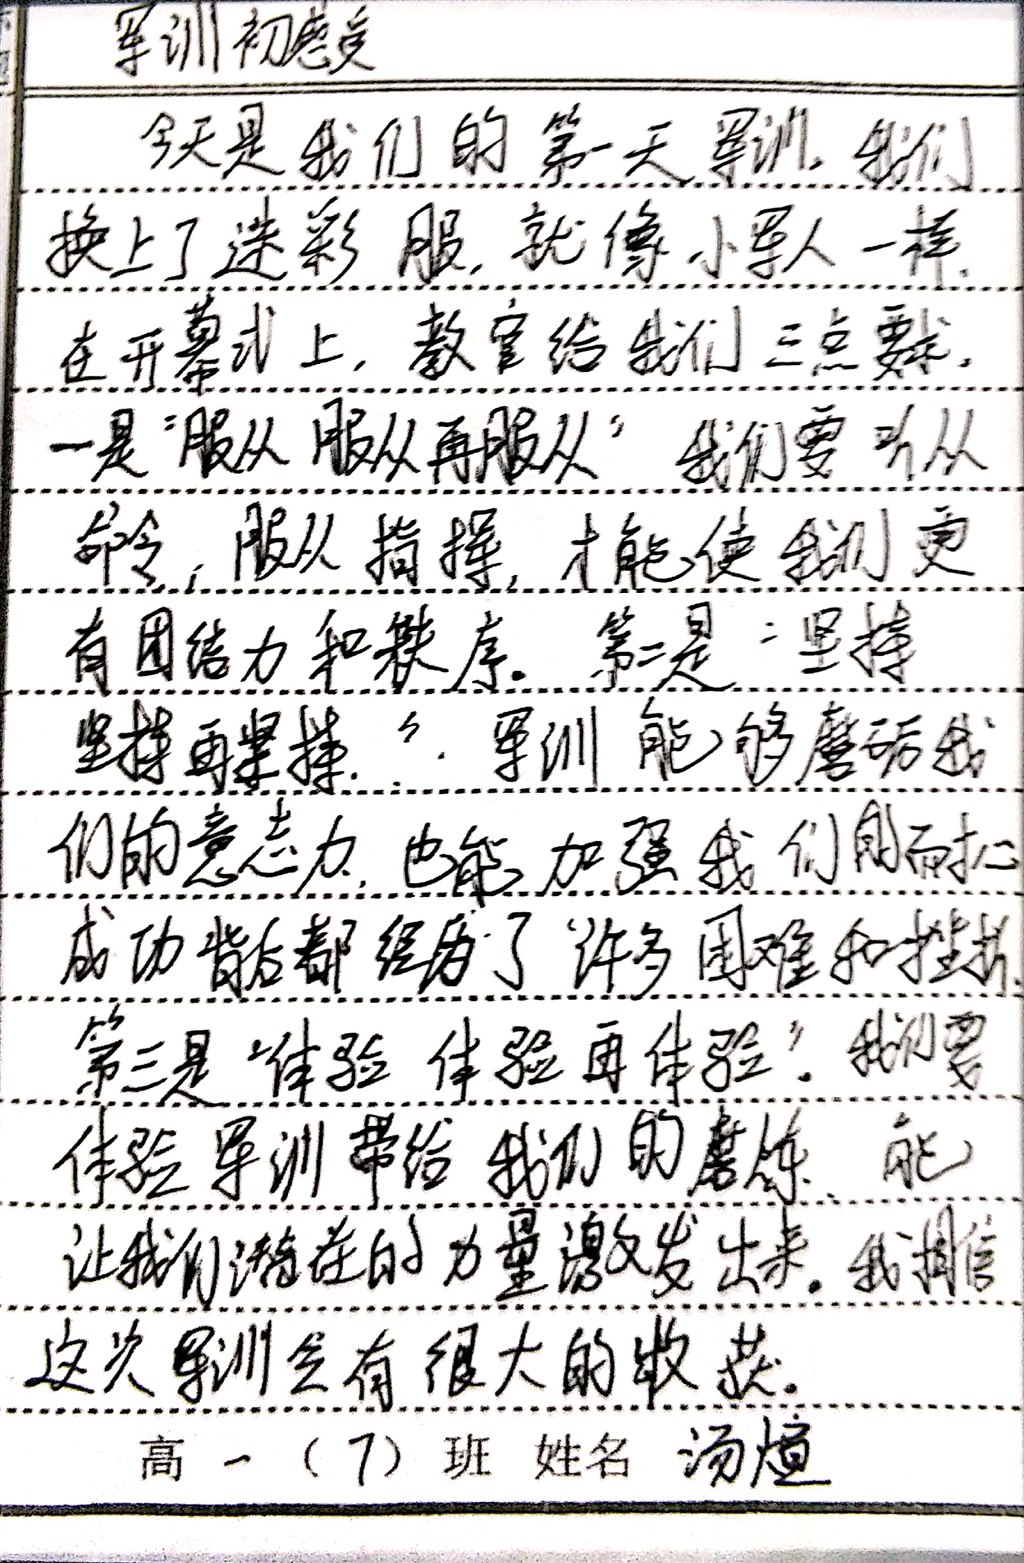 军训初感受
今天是我们的第一天军训,我们
换上了迷彩服,就像小军人一样,
在开幕式上,教官给我们三点要求,
一是“服从服从再服从”我们要听从
命令,服从指挥,才能使我们更
有团结力和秩序。第二是“坚持
坚持再坚持.”.军训能够磨砺我
们的意志力,也能加强我们的耐心
成功背后都经历了许多困难和挫折.
第三是“体验体验再体验”.我们要
体验军训带给我们的磨炼、能
让我们潜在的力量激发出来。我相信
这次军训会有很大的收获。
高一(7)班 姓名 汤煊